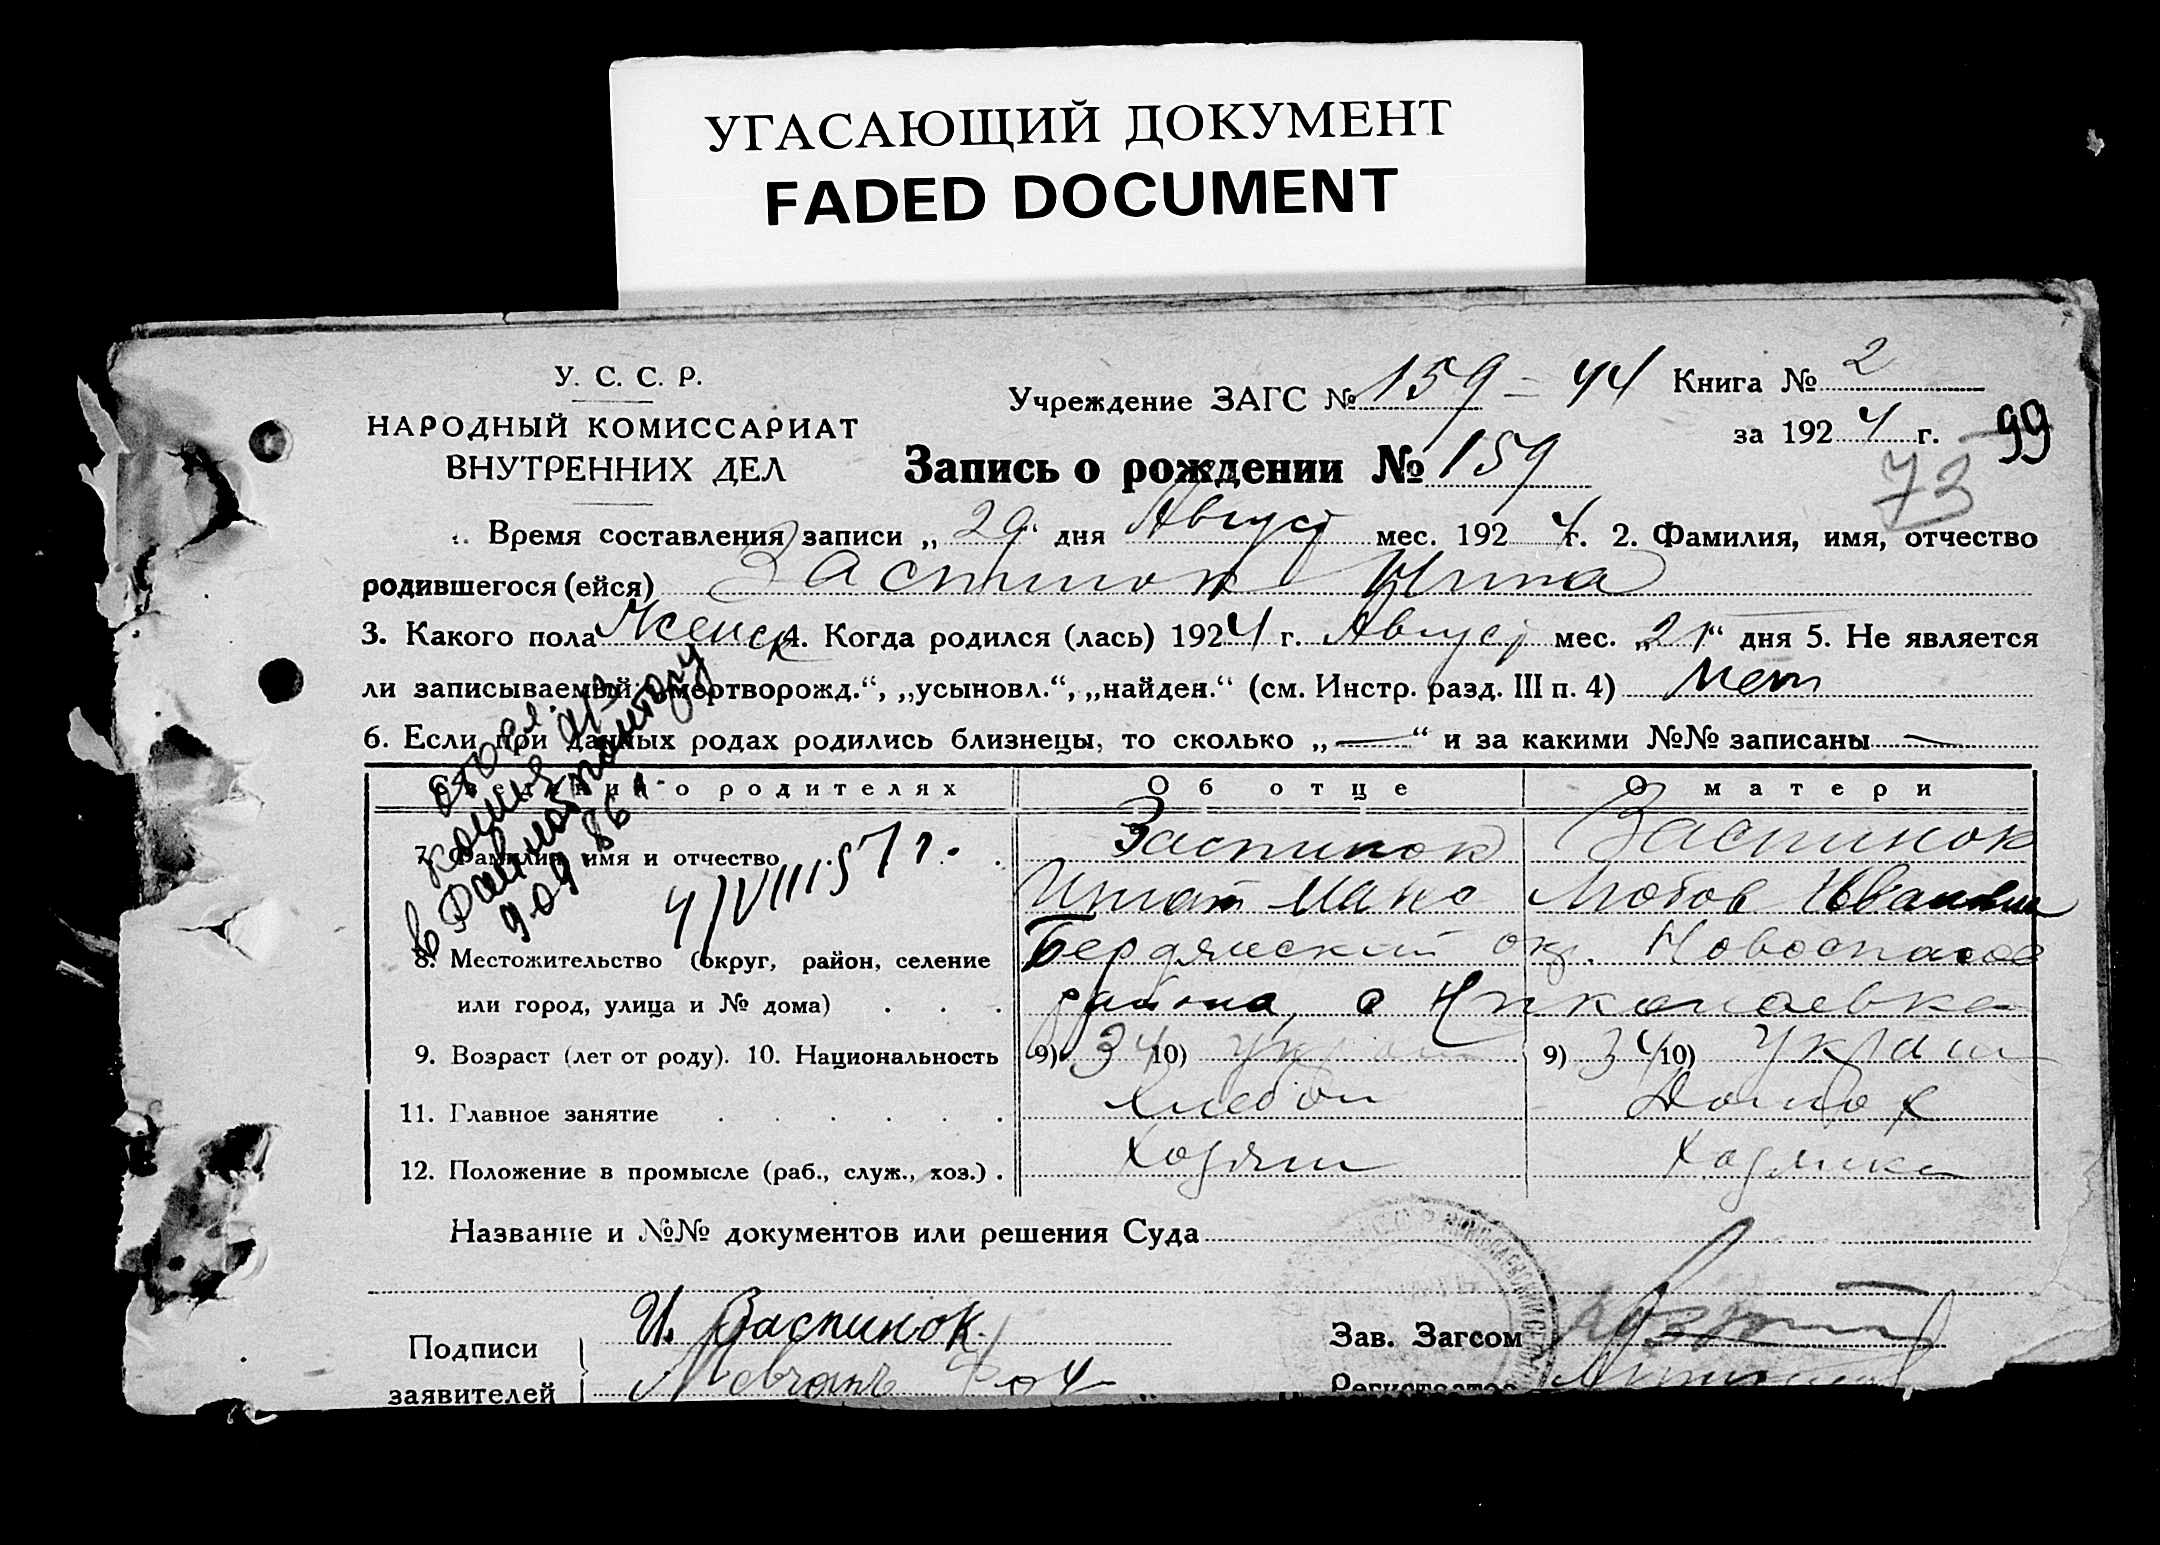 УГАСАЮЩИЙ ДОКУМЕНТ
FADED DOCUMENT
У. С. С. Р.
НАРОДНЫЙ КОМИССАРИАТ
ВНУТРЕННИХ ДЕЛ
Учреждение ЗАГС № 159 - 44
Книга № 2
за 1924 г.
99
73
Запись о рождении № 159
Время составления записи „29“ дня Август мес. 1924 г. 2. Фамилия, имя, отчество
родившегося (ейся) Заспинок Нина
3. Какого пола Женск 4. Когда родился (лась) 1924 г. Август мес. „21“ дня 5. Не является
ли записываемый: „мертворожд.“, „усыновл.“, „найден.“ (см. Инстр. разд. III п. 4) Нет
6. Если при данных родах родились близнецы, то сколько „—“ и за какими №№ записаны —
Сведения о родителях Об отце О матери
7. Фамилия, имя и отчество Заспинок Заспинок
Игнат Любов Ивановна
4/VIII 57 г.
8. Местожительство (округ, район, селение Бердянский окр. Новоспасов
или город, улица и № дома) района, с Николаевка
9. Возраст (лет от роду). 10. Национальность 9) 34 10) Украин 9) 34 10) Украин
11. Главное занятие Хлебоп Домох
12. Положение в промысле (раб., служ., хоз.) Хозяин Хозяйка
Название и №№ документов или решения Суда
Подписи И. Заспинок.
заявителей
Зав. Загсом
Регистратор